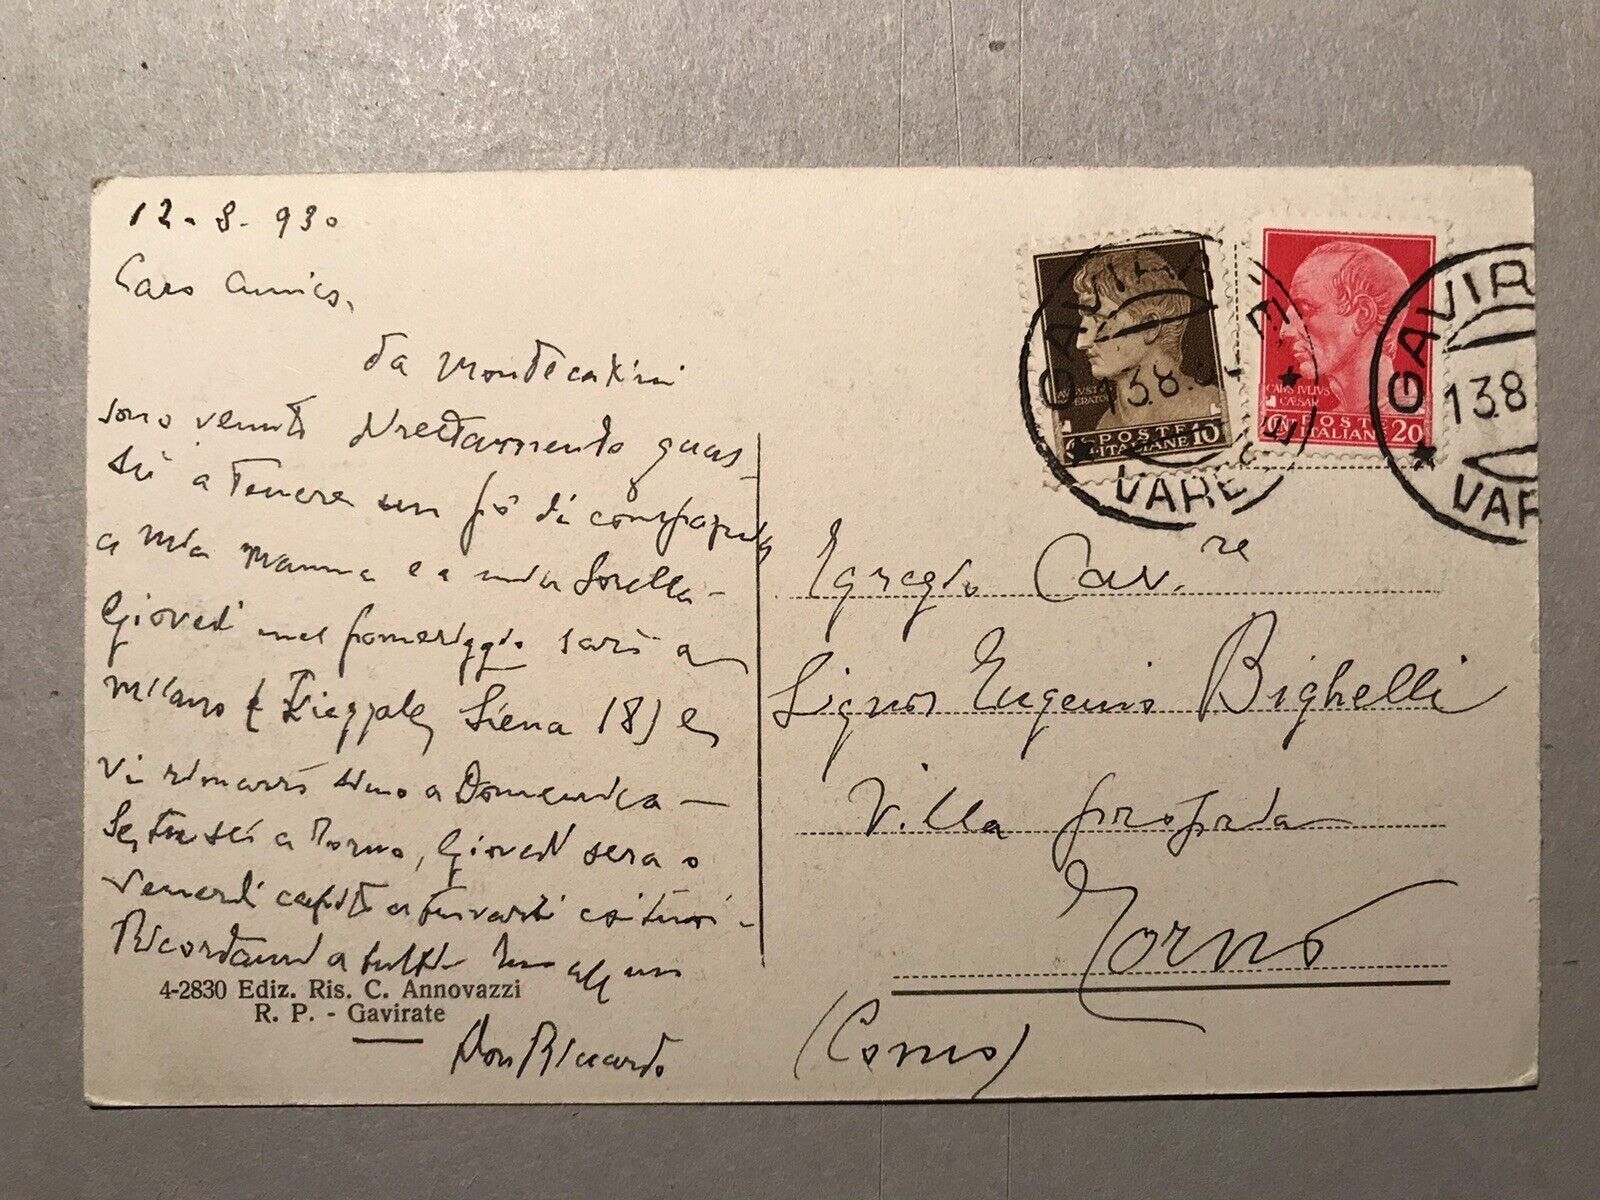 12-8-930
Caro Amico,
da Montecatini
sono venuto direttamente quas-
sù a tenere un pò di compagnia
a mia mamma e a mia sorella -
Giovedì nel pomeriggio sarò a
Milano (Piazzale Siena 18) e
vi rimarrò sino a Domenica -
Se tu sei a Torno, Giovedì sera o
Venerdì
Ricordami a tutti
Don Riccardo
4-2830 Ediz. Ris. C. Annovazzi
R. P. - Gavirate
AVGVSTVS
IMPERATOR
POSTE
ITALIANE 10
CAIVS IVLIVS
CÆSAR
CENT. POSTE
ITALIANE 20
GAVIRATE
13.8
VARESE
GAVIR
13.8
VAR
Egregio Cav.re
Signor Eugenio Bighelli
Villa propria
Torno
(Como)